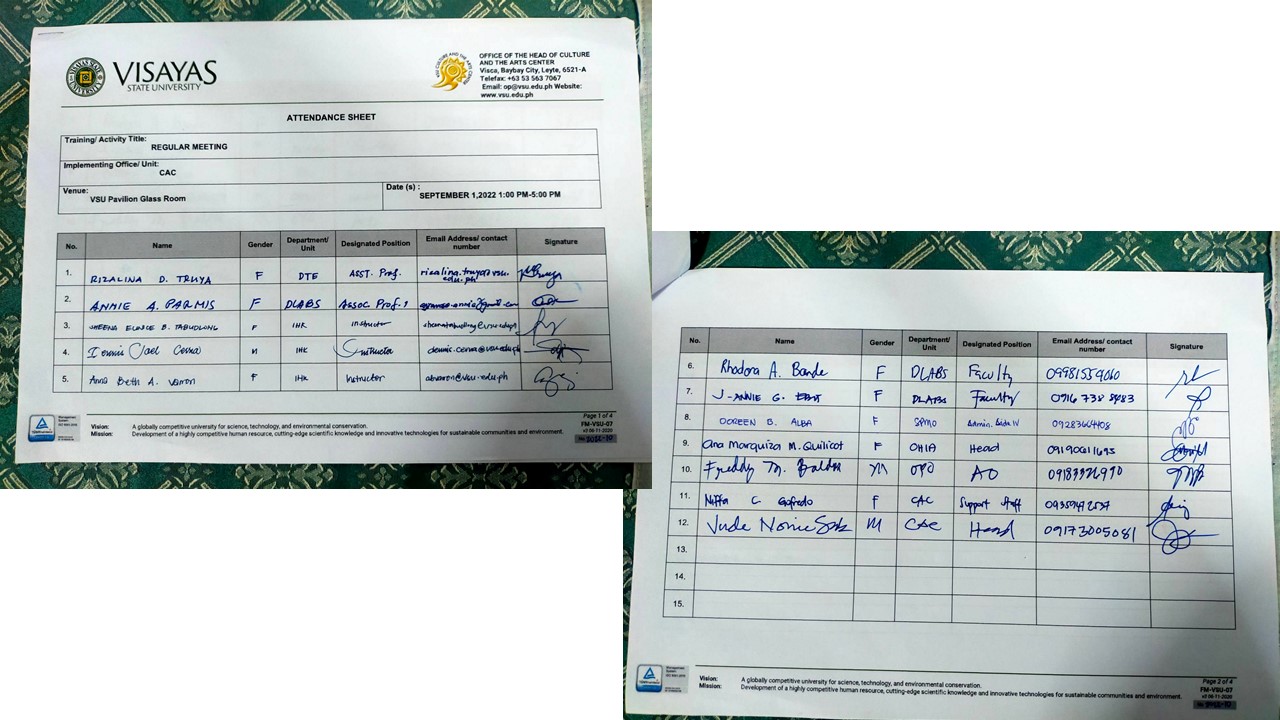 VISAYAS
STATE UNIVERSITY
OFFICE OF THE HEAD OF CULTURE
AND THE ARTS CENTER
Visca, Baybay City, Leyte, 6521-A
Telefax: +63 53 563 7067
Email: op@vsu.edu.ph Website:
www.vsu.edu.ph
ATTENDANCE SHEET
Training/ Activity Title:
REGULAR MEETING
Implementing Office/ Unit:
CAC
Venue:
VSU Pavilion Glass Room
Date (s) :
SEPTEMBER 1,2022 1:00 PM-5:00 PM
No. Name Gender Department/ Unit Designated Position Email Address/ contact number Signature
1. RIZALINA D. TRUYA F DTE ASST. Prof. rizalina.truya@vsu.edu.ph
2. ANNIE A. PARMIS F DLABS Assoc. Prof. 1
3. SHEENA EUNICE B. TABUDLONG F IHK instructor
4. Dennis Jael Cerna M IHK Instructor dennis.cerna@vsu.edu.ph
5. Anna Beth A. Varron F IHK Instructor abvarron@vsu.edu.ph
Vision: A globally competitive university for science, technology, and environmental conservation.
Mission: Development of a highly competitive human resource, cutting-edge scientific knowledge and innovative technologies for sustainable communities and environment.
Page 1 of 4
FM-VSU-07
v3 06-11-2020
No. Name Gender Department/ Unit Designated Position Email Address/ contact number Signature
6. Rhodora A. Bande F DLABS Faculty 09981559060
7. J-ANNIE G. F DLABS Faculty
8. DOREEN B. ALBA F SPMO Admin. Aide IV 09283664408
9. Ana Marquiza M. Quilicot F OHIA Head 09190611695
10. Freddy M. M AO
11. C. F CAC Support Staff
12. Jude Nonie Sales M CAC Head 09173005081
13.
14.
15.
Vision: A globally competitive university for science, technology, and environmental conservation.
Mission: Development of a highly competitive human resource, cutting-edge scientific knowledge and innovative technologies for sustainable communities and environment.
Page 2 of 4
FM-VSU-07
v3 06-11-2020